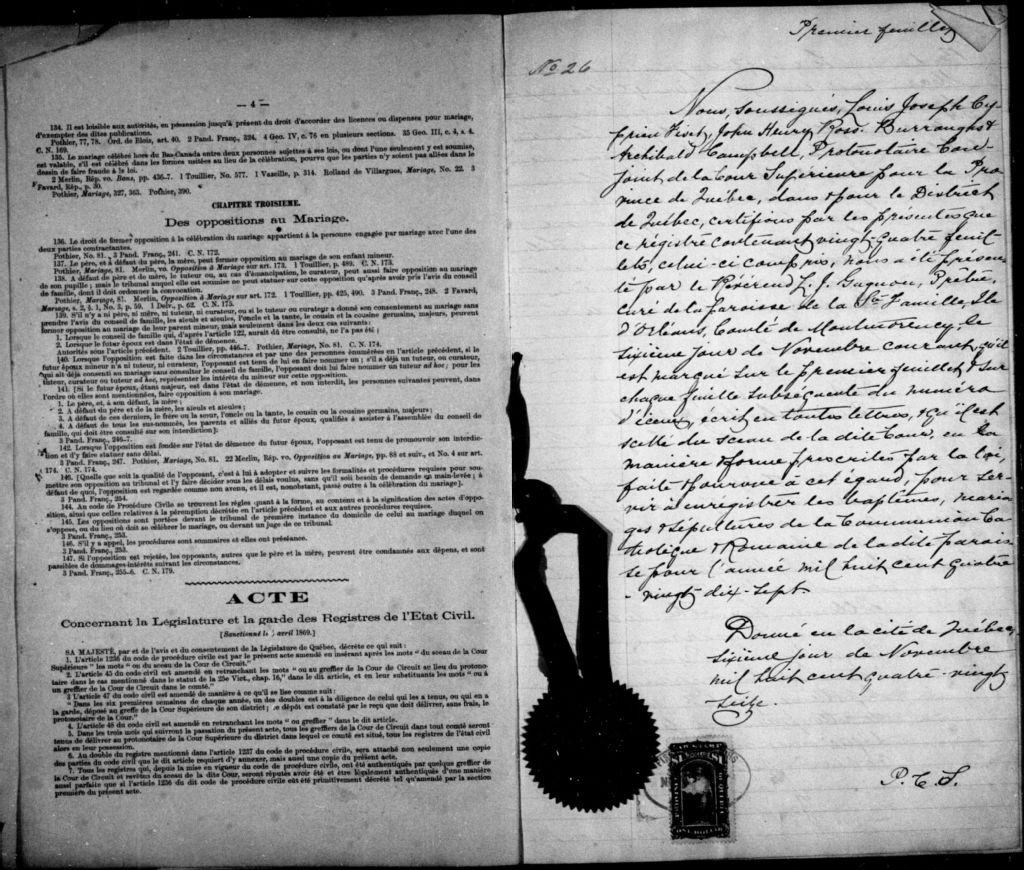 — 4 —
134. Il est loisible aux autorités, en possession jusqu'à présent du droit d'accorder des licences ou dispenses pour mariage,
d'exempter des dites publications.
Pothier, 77, 78. Ord. de Blois, art. 40. 2 Pand. Franç., 324. 4 Geo. IV, c. 76 en plusieurs sections. 35 Geo. III, c. 4, s. 4.
C. N. 169.
135. Le mariage célébré hors du Bas-Canada entre deux personnes sujettes à ses lois, ou dont l'une seulement y est soumise,
est valable, s'il est célébré dans les formes usitées au lieu de la célébration, pourvu que les parties n'y soient pas allées dans le
dessin de faire fraude à la loi.
2 Merlin, Rép. vo. Bans, pp. 436-7. 1 Touillier, No. 577. 1 Vazeille, p. 314. Rolland de Villargues, Mariage, No. 22. 3
Favard, Rép., p. 30.
Pothier, Mariage, 327, 363. Pothier, 390.
CHAPITRE TROISIEME.
Des oppositions au Mariage.
136. Le droit de former opposition à la célébration du mariage appartient à la personne engagée par mariage avec l'une des
deux parties contractantes.
Pothier, No. 81. 3 Pand. Franç., 241. C. N. 172.
137. Le père, et à défaut du père, la mère, peut former opposition au mariage de son enfant mineur.
Pothier, Mariage, 81. Merlin, vo. Opposition à Mariage sur art. 173. 1 Touillier, p. 489. C. N. 173.
138. A défaut de père et de mère, le tuteur ou, au cas d'émancipation, le curateur, peut aussi faire opposition au mariage
de son pupille; mais le tribunal auquel elle est soumise ne peut statuer sur cette opposition qu'après avoir pris l'avis du conseil
de famille, dont il doit ordonner la convocation.
Pothier, Mariage, 81. Merlin, Opposition à Mariage sur art. 172. 1 Touillier, pp. 425, 490. 3 Pand. Franç., 248. 2 Favard,
Mariage, s. 2, § 1, No. 3, p. 59. 1 Delv., p. 62. C. N. 175.
139. S'il n'y a ni père, ni mère, ni tuteur, ni curateur, ou si le tuteur ou curateur a donné son consentement au mariage sans
prendre l'avis du conseil de famille, les aïeuls et aïeules, l'oncle et la tante, le cousin et la cousine germains, majeurs, peuvent
former opposition au mariage de leur parent mineur, mais seulement dans les deux cas suivants:
1. Lorsque le conseil de famille qui, d'après l'article 122, aurait dû être consulté, ne l'a pas été;
2. Lorsque le futur époux est dans l'état de démence.
Autorités sous l'article précédent. 2 Touillier, pp. 446-7. Pothier, Mariage, No. 81. C. N. 174.
140. Lorsque l'opposition est faite dans les circonstances et par une des personnes énumérées en l'article précédent, si le
futur époux mineur n'a ni tuteur, ni curateur, l'opposant est tenu de lui en faire nommer un; s'il a déjà un tuteur, ou curateur,
qui ait déjà consenti au mariage sans consulter le conseil de famille, l'opposant doit lui faire nommer un tuteur ad hoc; pour les
tuteur, curateur ou tuteur ad hoc, représenter les intérêts du mineur sur cette opposition.
141. [Si le futur époux, étant majeur, est dans l'état de démence, et non interdit, les personnes suivantes peuvent, dans
l'ordre où elles sont mentionnées, faire opposition à son mariage.
1. Le père, et, à son défaut, la mère;
2. A défaut du père et de la mère, les aïeuls et aïeules;
3. A défaut de ces derniers, le frère ou la sœur, l'oncle ou la tante, le cousin ou la cousine germains, majeurs;
4. A défaut de tous les sus-nommés, les parents et alliés du futur époux, qualifiés à assister à l'assemblée du conseil de
famille, qui doit être consulté sur son interdiction;]
3 Pand. Franç., 246-7.
142. Lorsque l'opposition est fondée sur l'état de démence du futur époux, l'opposant est tenu de promouvoir son interdic-
tion et d'y faire statuer sans délai.
3 Pand. Franç., 247. Pothier, Mariage, No. 81. 22 Merlin, Rép. vo. Opposition au Mariage, pp. 88 et suiv., et No. 4 sur art.
174. C. N. 174.
143. [Quelle que soit la qualité de l'opposant, c'est à lui à adopter et suivre les formalités et procédures requises pour sou-
mettre son opposition au tribunal et l'y faire décider sous les délais voulus, sans qu'il soit besoin de demande en main-levée; à
défaut de quoi, l'opposition est regardée comme non avenue, et il est, nonobstant, passé outre à la célébration du mariage].
3 Pand. Franç., 254.
144. Au code de Procédure Civile se trouvent les règles quant à la forme, au contenu et à la signification des actes d'oppo-
sition, ainsi que celles relatives à la péremption décrétée en l'article précédent et aux autres procédures requises.
145. Les oppositions sont portées devant le tribunal de première instance du domicile de celui au mariage duquel on
s'oppose, ou du lieu où doit se célébrer le mariage, ou devant un juge de ce tribunal.
3 Pand. Franç., 253.
146. S'il y a appel, les procédures sont sommaires et elles ont préséance.
3 Pand. Franç., 253.
147. Si l'opposition est rejetée, les opposants, autres que le père et la mère, peuvent être condamnés aux dépens, et sont
passibles de dommages-intérêts suivant les circonstances.
3 Pand. Franç., 255-6. C. N. 179.
ACTE
Concernant la Législature et la garde des Registres de l'Etat Civil.
[Sanctionné le 5 avril 1869.]
SA MAJESTÉ, par et de l'avis et du consentement de la Législature de Québec, décrète ce qui suit:
1. L'article 1236 du code de procédure civile est par le présent acte amendé en insérant après les mots "du sceau de la Cour
Supérieure" les mots "ou du sceau de la Cour de Circuit."
2. L'article 45 du code civil est amendé en retranchant les mots "ou au greffier de la Cour de Circuit au lieu du protono-
taire dans le cas mentionné dans le statut de la 25e Vict., chap. 16," dans le dit article, et en leur substituants les mots "ou à
un greffier de la Cour de Circuit dans le comté."
3 L'article 47 du code civil est amendé de manière à ce qu'il se lise comme suit:
"Dans les six premières semaines de chaque année, un des doubles est à la diligence de celui qui les a tenus, ou qui en a
la garde, déposé au greffe de la Cour Supérieure de son district; ce dépôt est constaté par le reçu que doit délivrer, sans frais, le
protonotaire de la Cour."
4. L'article 48 du code civil est amendé en retranchant les mots "ou greffier" dans le dit article.
5. Dans les trois mois qui suivront la passation du présent acte, tous les greffiers de la Cour de Circuit dans tout comté seront
tenus de délivrer au protonotaire de la Cour Supérieure du district dans lequel ce comté est situé, tous les registres de l'état civil
alors en leur possession.
6. Au double du registre mentionné dans l'article 1237 du code de procédure civile, sera attaché non seulement une copie
des parties du code civil que le dit article requiert d'y annexer, mais aussi une copie du présent acte.
7. Tous les registres qui, depuis la mise en vigueur du code de procédure civile, ont été authentiqués par quelque greffier de
la Cour de Circuit et revêtus du sceau de la dite Cour, seront réputés avoir été et être légalement authentiqués d'une manière
aussi parfaite que si l'article 1236 du dit code de procédure civile eût été primitivement décrété tel qu'amendé par la section
première du présent acte.
Premier feuillet
No 26
Nous, soussignés, Louis Joseph Cy-
prien Fiset, John Henry Ross Burroughs &
Archibald Campbell, Protonotaire Con-
joint de la Cour Supérieure pour la Pro-
vince de Québec, dans & pour le District
de Québec, certifions par les présentes que
ce régistre contenant vingt-quatre feuil-
lets, celui-ci compris, nous a été présen-
té par le Révérend L. J. Gagnon, Prêtre,
Curé de la paroisse de la Ste Famille, Ile
d'Orléans, Comté de Montmorency, le
sixième jour de Novembre courant, qu'il
est marqué sur le premier feuillet & sur
chaque feuille subséquente du numéro
d'iceux, écrit en toutes lettres, & qu'il est
scellé du sceau de la dite Cour, en la
manière & forme prescrites par la loi,
faite & pourvue à cet égard, pour ser-
vir à enregistrer les baptêmes, maria-
ges & sépultures de la Communion Ca-
tholique & Romaine de la dite parois-
se pour l'année mil huit cent quatre
-vingt dix-sept
Donné en la cité de Québec,
sixième jour de Novembre
mil huit cent quatre-vingt
seize.
P. C. S.
LAW STAMP
ONE DOLLAR